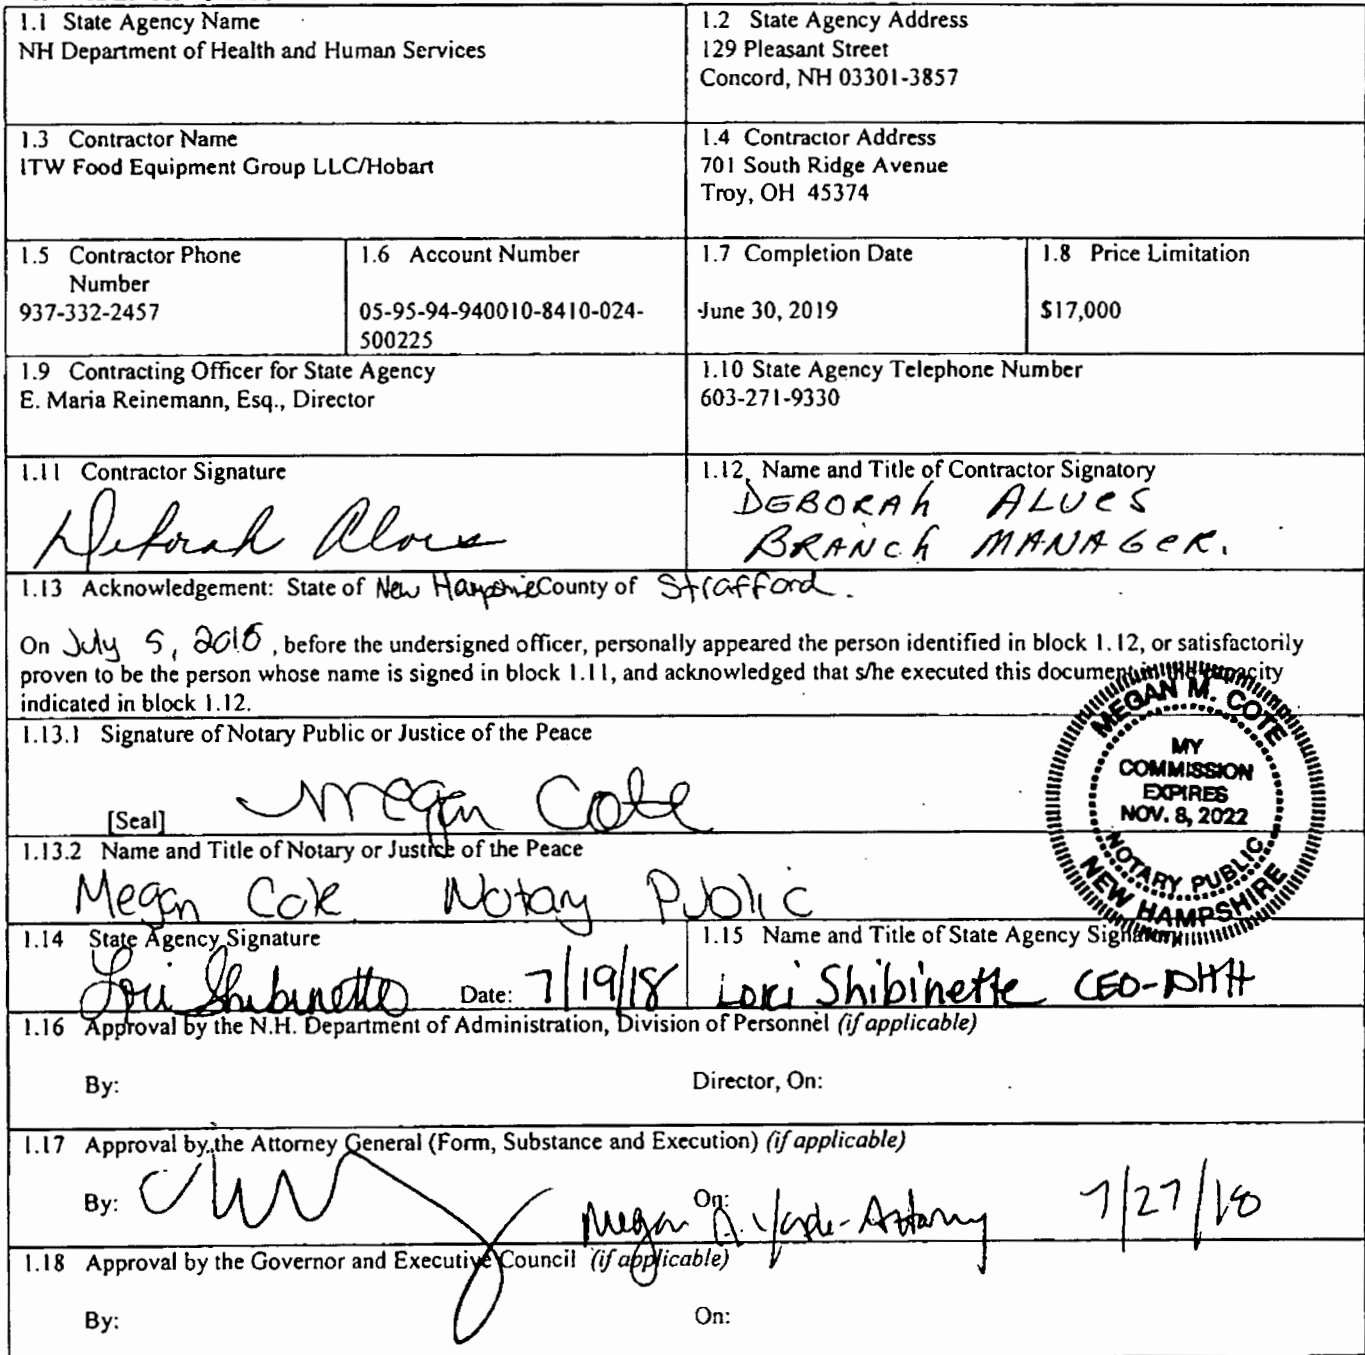 1.1 State Agency Name
NH Department of Health and Human Services
1.2 State Agency Address
129 Pleasant Street
Concord, NH 03301-3857
1.3 Contractor Name
ITW Food Equipment Group LLC/Hobart
1.4 Contractor Address
701 South Ridge Avenue
Troy, OH 45374
1.5 Contractor Phone
Number
937-332-2457
1.6 Account Number
05-95-94-940010-8410-024-
500225
1.7 Completion Date
June 30, 2019
1.8 Price Limitation
$17,000
1.9 Contracting Officer for State Agency
E. Maria Reinemann, Esq., Director
1.10 State Agency Telephone Number
603-271-9330
1.11 Contractor Signature
Deborah Alves
1.12 Name and Title of Contractor Signatory
DEBORAh ALVES
BRANCh MANAGER.
1.13 Acknowledgement: State of New Hampshire County of Strafford.
On July 5, 2018, before the undersigned officer, personally appeared the person identified in block 1.12, or satisfactorily
proven to be the person whose name is signed in block 1.11, and acknowledged that s/he executed this document in the capacity
indicated in block 1.12.
1.13.1 Signature of Notary Public or Justice of the Peace
Megan Cote
[Seal]
MEGAN M. COTE
MY
COMMISSION
EXPIRES
NOV. 8, 2022
NOTARY PUBLIC
NEW HAMPSHIRE
1.13.2 Name and Title of Notary or Justice of the Peace
Megan Cote Notary Public
1.14 State Agency Signature
Lori Shibinette Date: 7/19/18
1.15 Name and Title of State Agency Signatory
Lori Shibinette CEO-NHH
1.16 Approval by the N.H. Department of Administration, Division of Personnel (if applicable)
By: Director, On:
1.17 Approval by the Attorney General (Form, Substance and Execution) (if applicable)
By: On:
Megan A. - Attorney 7/27/18
1.18 Approval by the Governor and Executive Council (if applicable)
By: On: